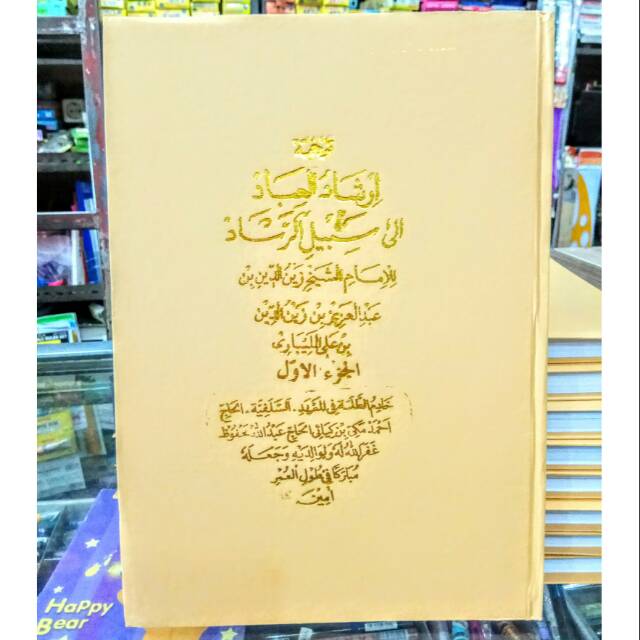 ترجمة
إرشاد العباد
الى سبيل الرشاد
للإمام الشيخ زين الدين بن
عبد العزيز بن زين الدين
بن علي المليباري
الجزء الاول
خادم الطلبة في المعهد السلفية الحاج
احمد مكي بن كياهي الحاج عبد الله محفوظ
غفر الله له ولوالديه وجعله
مباركا في طول العمر
امين
HaPPy
Bear